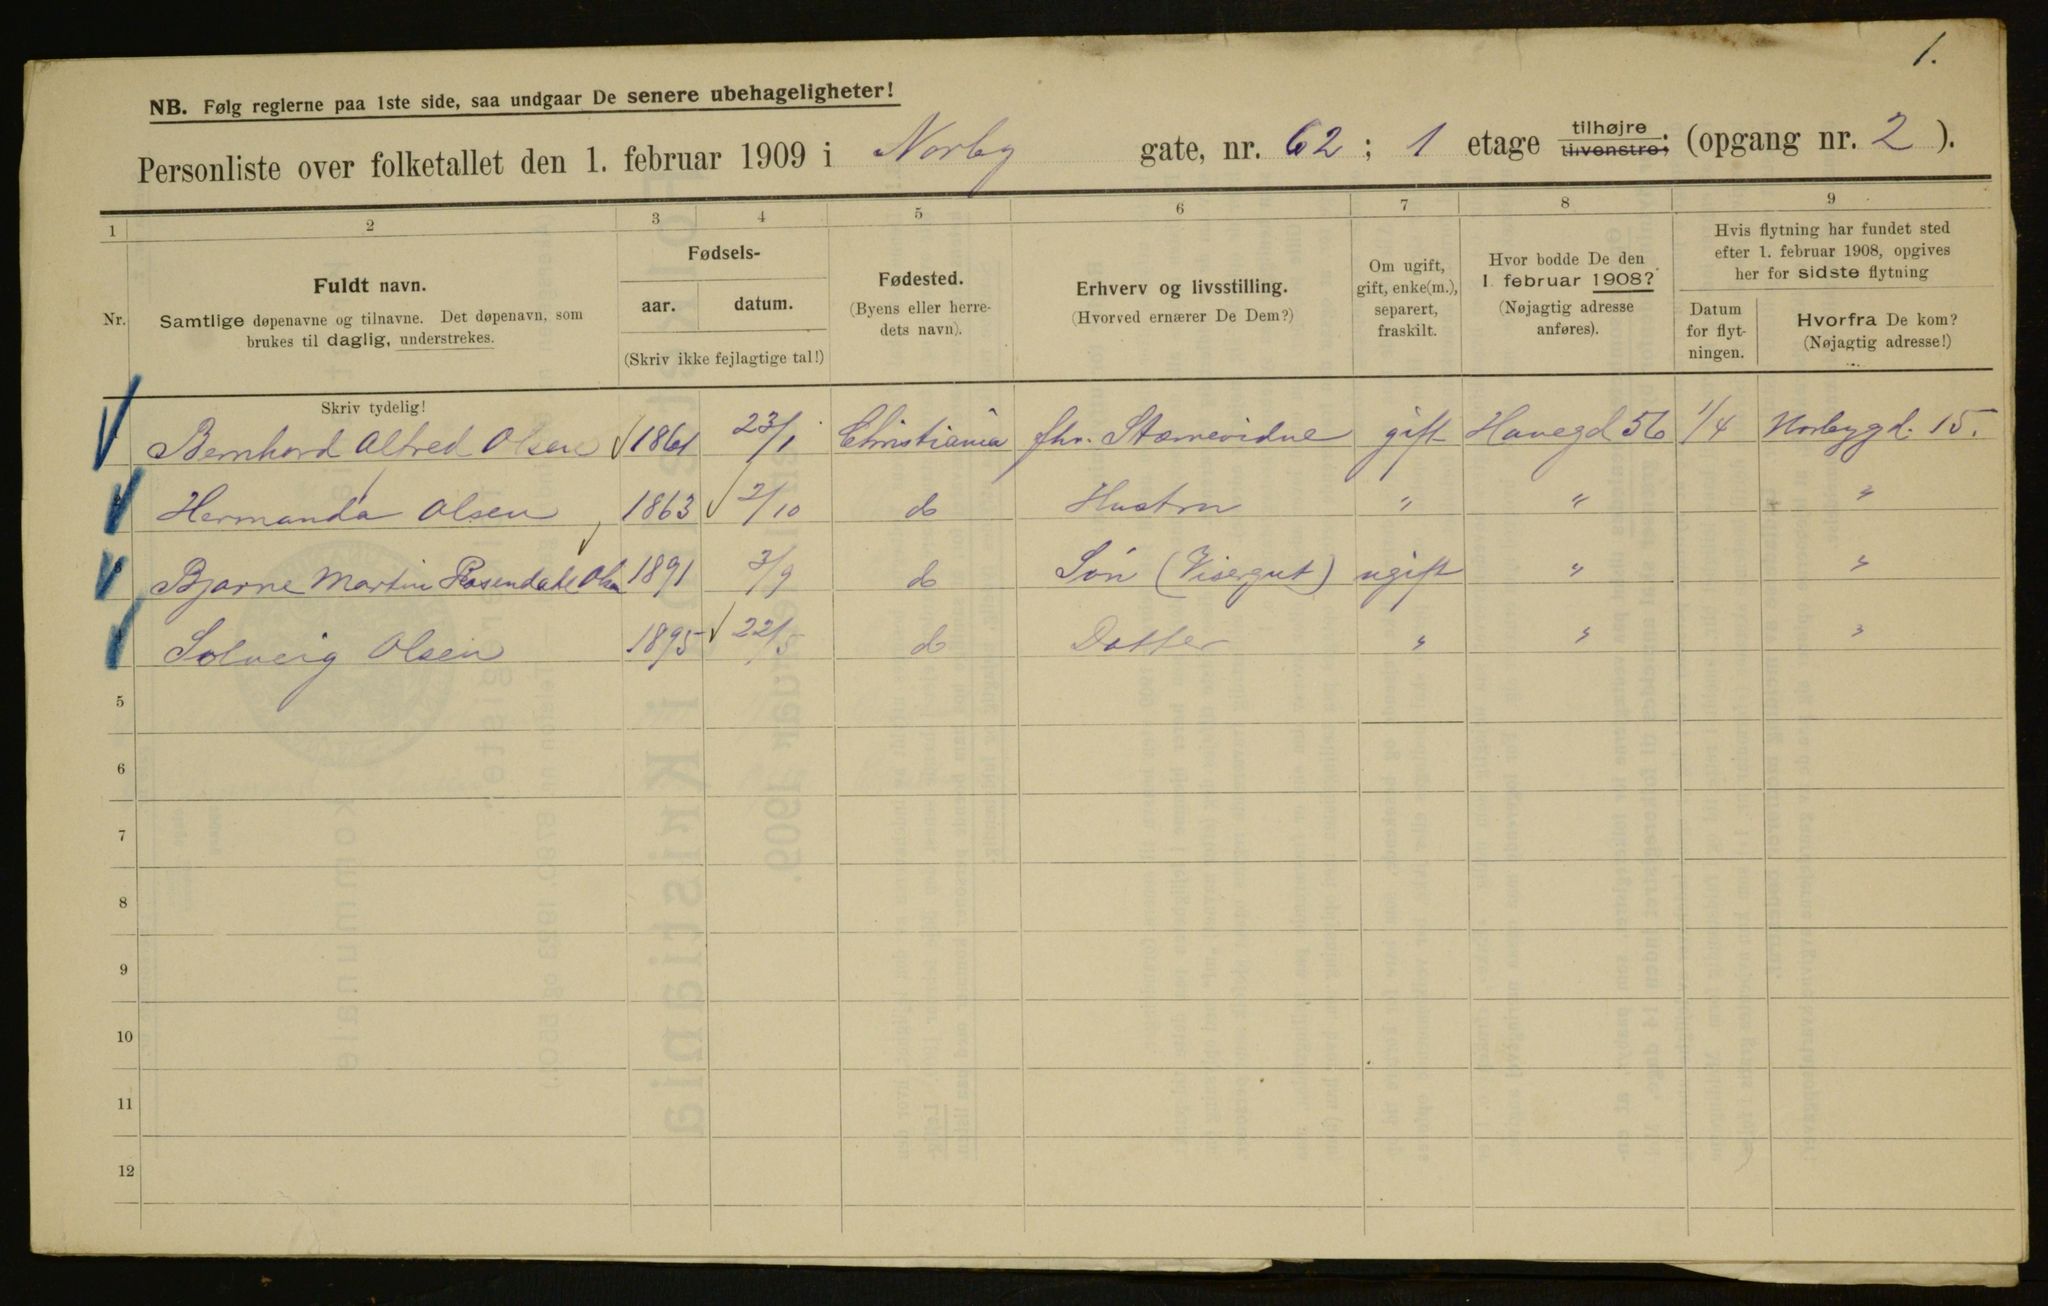 1.
NB. Følg reglerne paa 1ste side, saa undgaar De senere ubehageligheter!
Personliste over folketallet den 1. februar 1909 i Norby gate, nr. 62 ; 1 etage tilhøjre. tilvenstre; (opgang nr. 2 ).
1 2 3 4 5 6 7 8 9
Nr.
Fuldt navn.
Samtlige døpenavne og tilnavne. Det døpenavn, som
brukes til daglig, understrekes.
Fødsels-
aar. datum.
(Skriv ikke fejlagtige tal!)
Fødested.
(Byens eller herre-
dets navn).
Erhverv og livsstilling.
(Hvorved ernærer De Dem?)
Om ugift,
gift, enke(m.),
separert,
fraskilt.
Hvor bodde De den
1. februar 1908?
(Nøjagtig adresse
anføres).
Hvis flytning har fundet sted
efter 1. februar 1908, opgives
her for sidste flytning
Datum
for flyt-
ningen.
Hvorfra De kom?
(Nøjagtig adresse!)
Skriv tydelig!
Bernhard Alfred Olsen 1861 23/1 Christiania fhv. gift Havegd 56 1/4 Norbygd. 15.
Hermanda Olsen 1863 2/10 do Hustru " " "
Bjarne Martin Rosendahl Olsen 1891 3/9 do Søn (Visergut) ugift " "
4 Solveig Olsen 1895 22/5 do Datter " " "
5
6
7
8
9
10
11
12